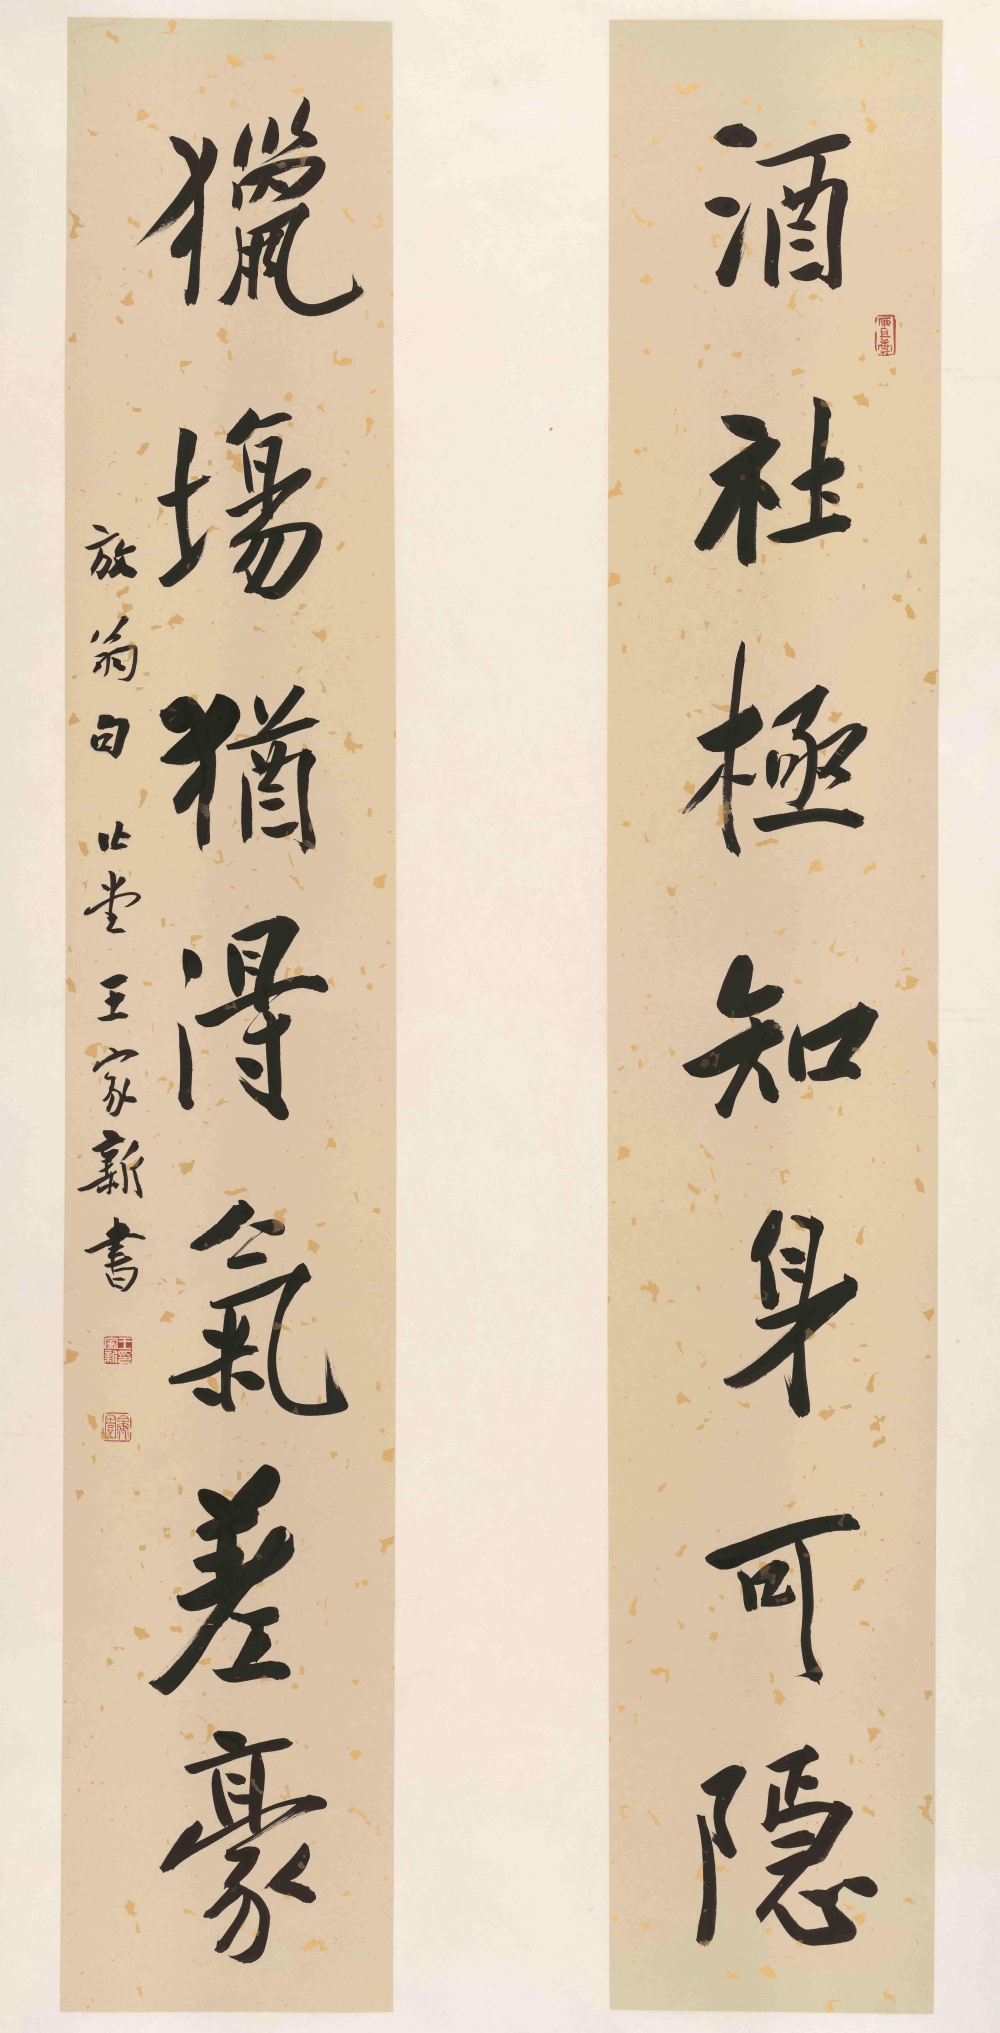 酒社極知身可隱
獵場猶得氣差豪
放翁句 止堂王家新書
王家新印